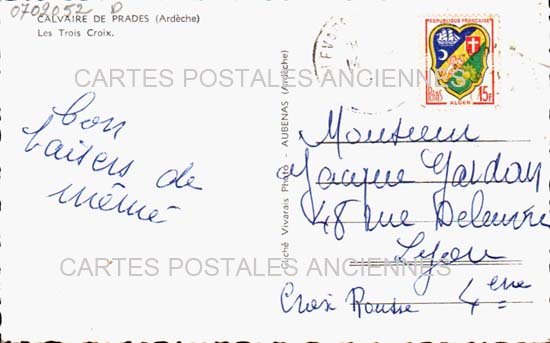 0702052 D
CALVAIRE DE PRADES (Ardèche)
Les Trois Croix.
REPUBLIQUE FRANÇAISE
Postes
15F
ALGER
CARTES POSTALES ANCIENNES
bon
baisers de
mémé
Cliché Vivarais Photo - AUBENAS (Ardèche)
Monsieur
Jacques
48 rue Deleuvre
Lyon
Croix Rousse 4 eme
CARTES POSTALES ANCIENNES